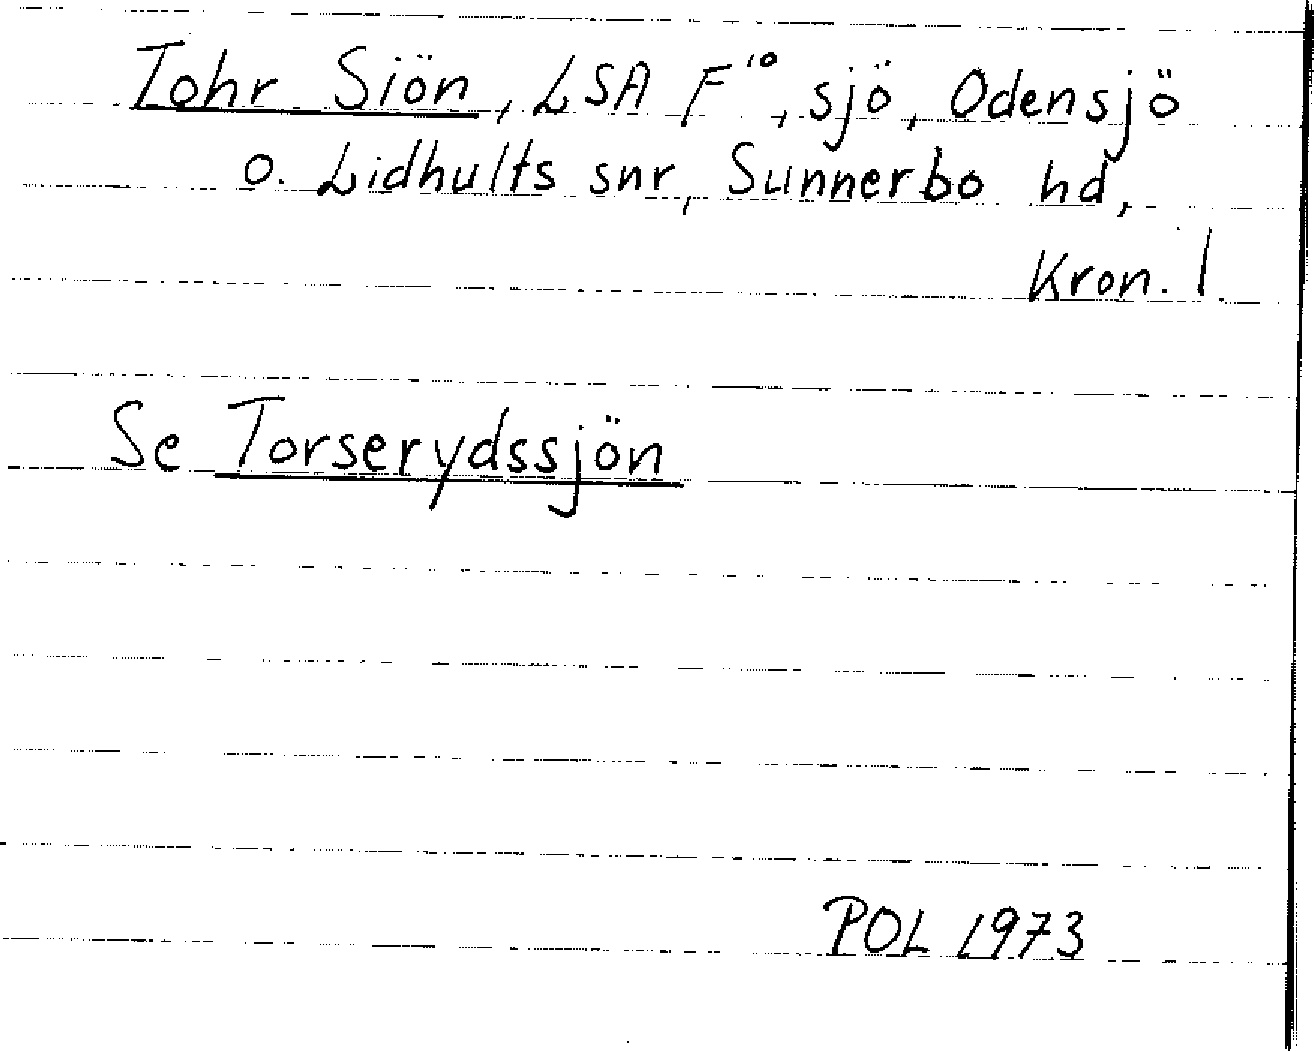 Tohr Siön, LSA F¹⁰, sjö, Odensjö
o. Lidhults snr, Sunnerbo hd,
Kron. l.
Se Torserydssjön
POL 1973